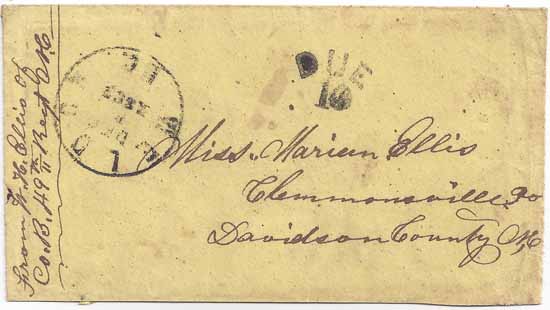 From W. H. Ellis of
Co. B. 49th Regt N.C.
DUE
10
Miss. Marien Ellis
Clemmonsville Po
Davidson County NC